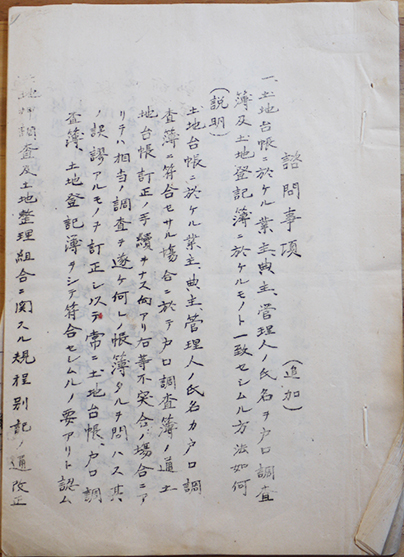 諮問事項　(追加)
一、土地台帳ニ於ケル業主、典主、管理人ノ氏名ヲ戸口調査
簿及土地登記簿ニ於ケルモノト一致セシムル方法如何
(説明)
土地台帳ニ於ケル業主、典主、管理人ノ氏名カ戸口調
査簿ニ符合セサル場合ニ於テ戸口調査簿ノ通土
地台帳訂正ノ手續ヲナス向アリ右等不突合ノ場合ニア
リテハ相当ノ調査ヲ遂ケ何レノ帳簿タルヲ問ハス其
ノ誤謬アルモノヲ訂正シ以テ常ニ土地台帳、戸口調
査簿、土地登記簿ヲシテ符合セシムルノ要アリト認ム
調査及土地整理組合ニ関スル規程別記ノ通改正